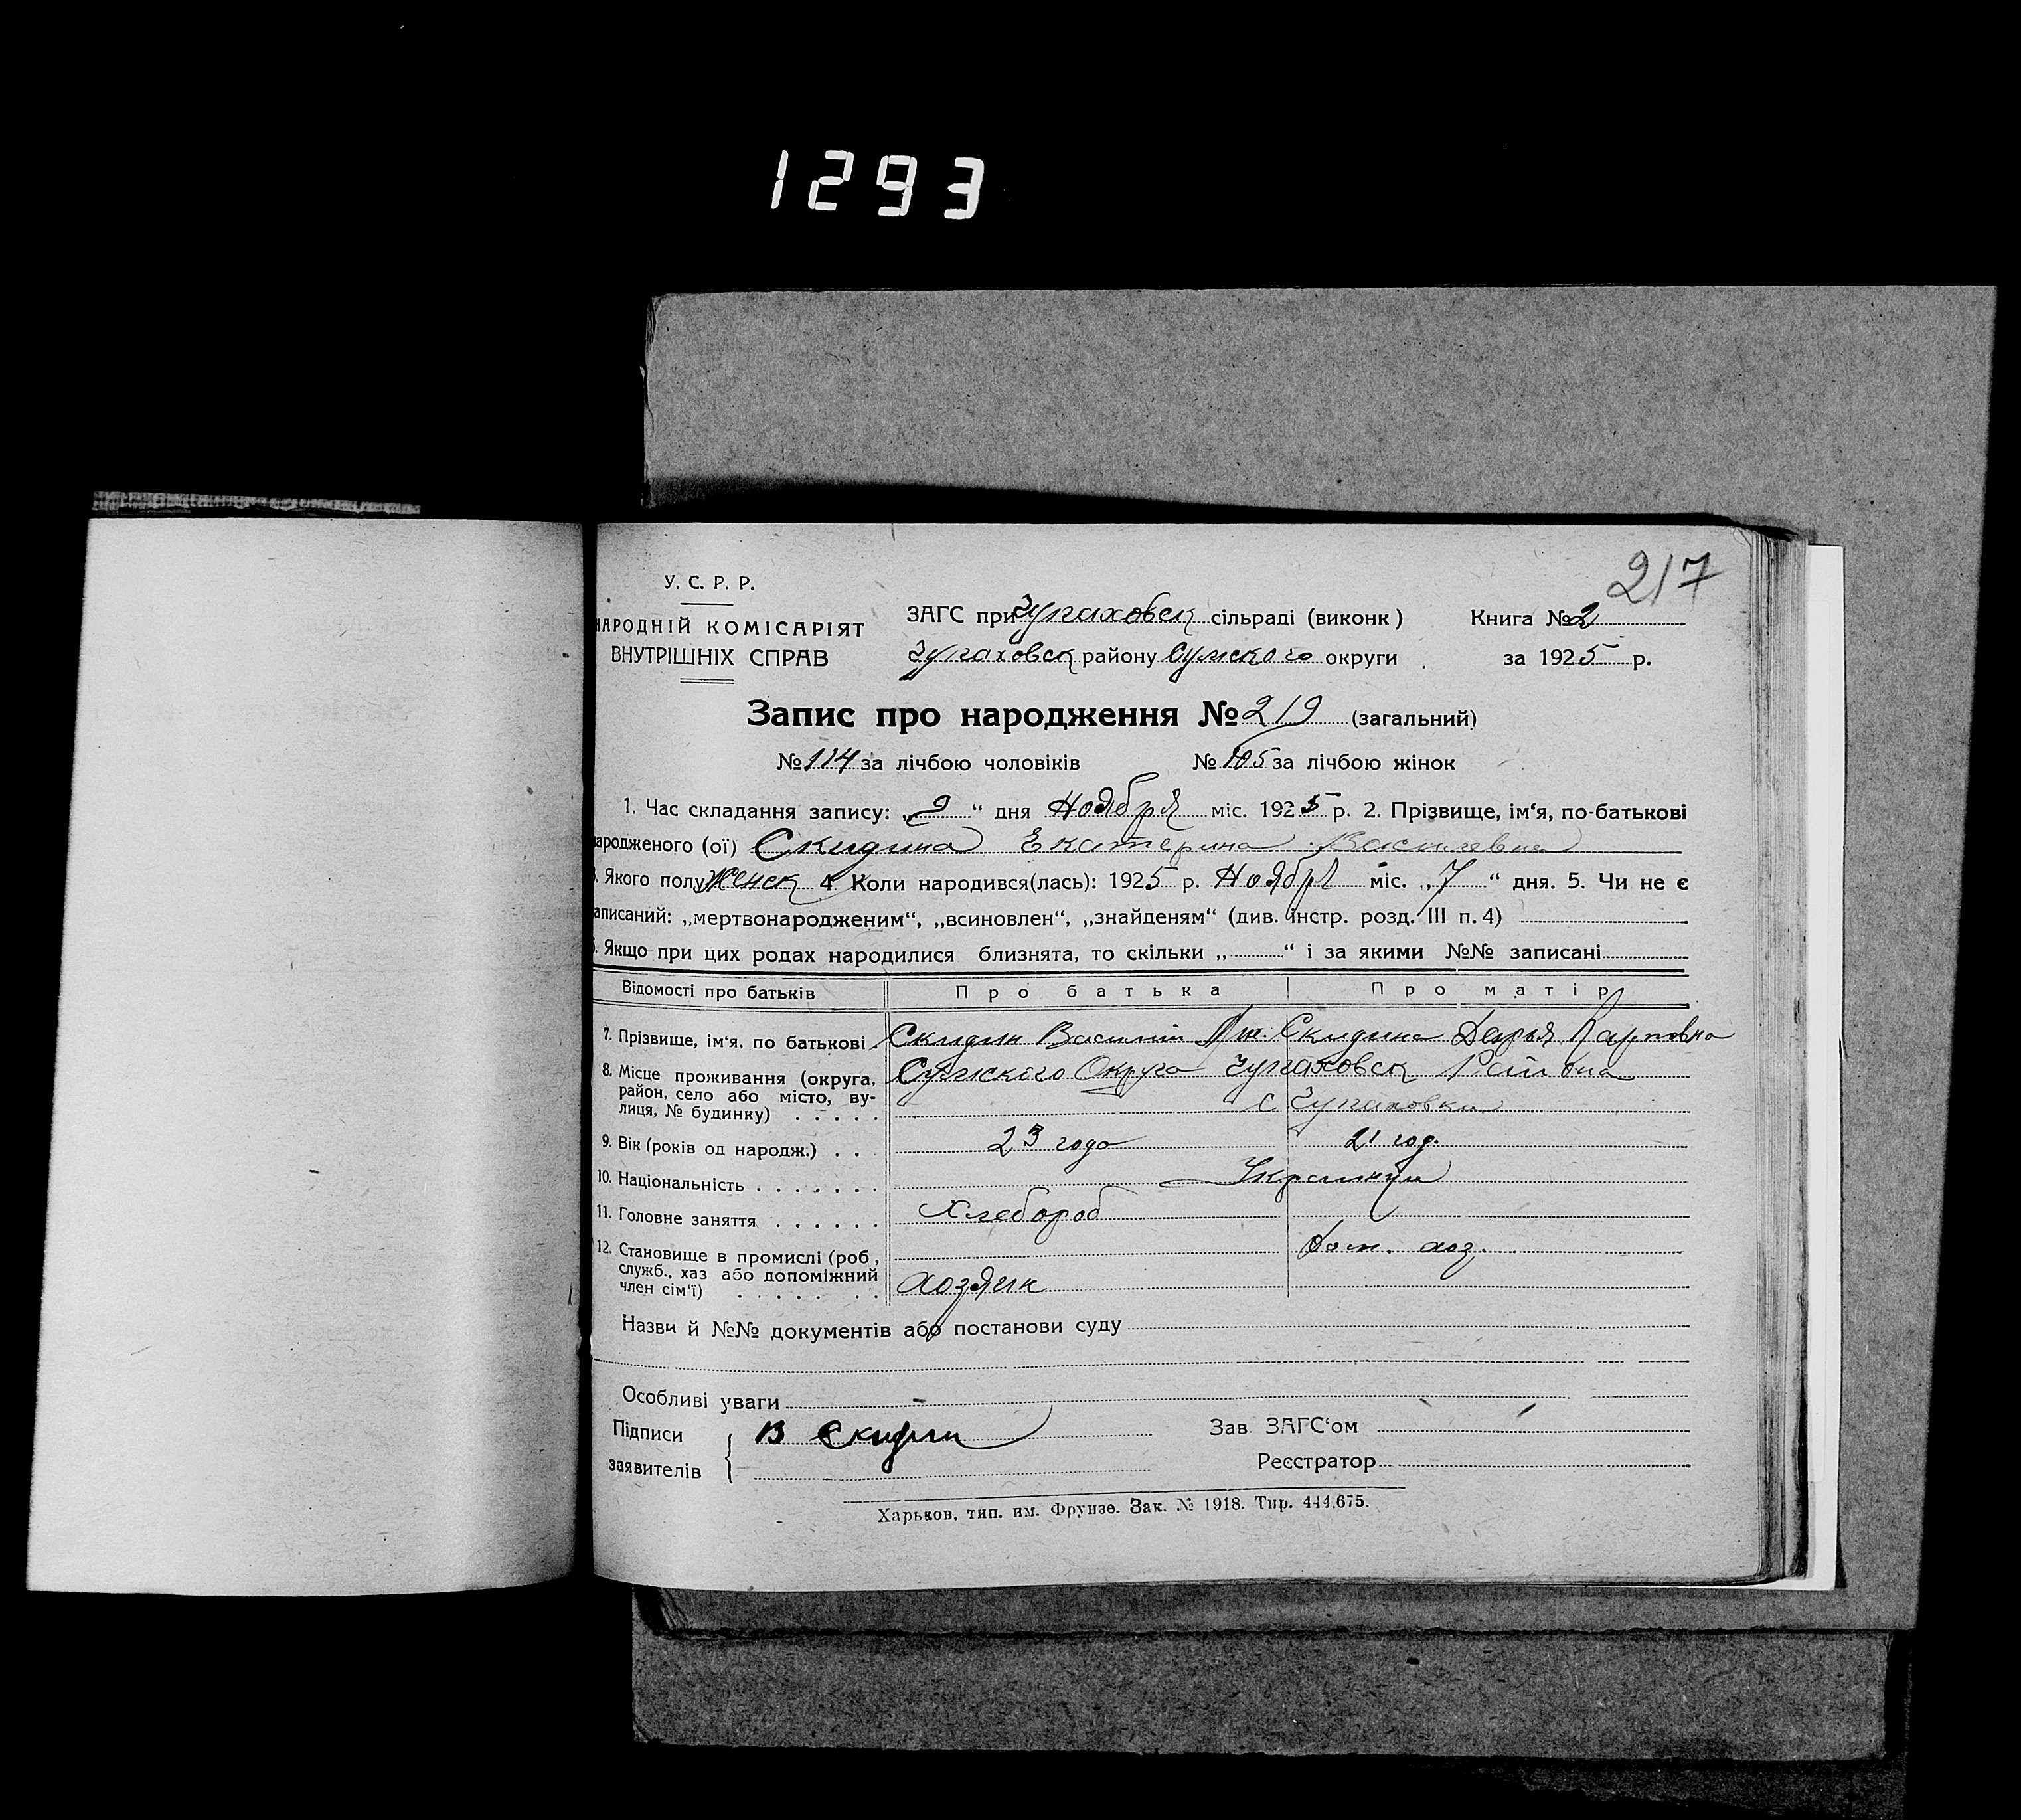 1293
217
У. С. Р. Р.
НАРОДНІЙ КОМІСАРІЯТ
ВНУТРІШНІХ СПРАВ
ЗАГС при сільраді (виконк)
району Сумского округи
Книга № 2
за 1925 р.
Запис про народження № 219 (загальний)
№ 114 за лічбою чоловіків № 105 за лічбою жінок
1. Час складання запису: „9“ дня Ноября міс. 1925 р. 2. Прізвище, ім‘я, по-батькові
народженого (ої) Скидина Екатерина Васильевна
3. Якого полу Женск 4. Коли народився(лась): 1925 р. Ноября міс. „7“ дня. 5. Чи не є
записаний: „мертвонародженим“, „всиновлен“, „знайденям“ (див. інстр. розд. III п. 4)
6. Якщо при цих родах народилися близнята, то скільки „ “ і за якими №№ записані
Відомості про батьків Про батька Про матір
7. Прізвище, ім‘я, по батькові Скидин Василий Скидина Дарья Карповна
8. Місце проживання (округа, Сумского Округа Района
район, село або місто, ву-
лиця, № будинку) с
9. Вік (років од народж.) 23 года 21 год.
10. Національність Украинцы
11. Головне заняття Хлебороб
12. Становище в промислі (роб., дом. хоз.
служб., хаз або допоміжний
член сім‘ї) хозяин
Назви й №№ документів або постанови суду
Особливі уваги
Підписи В Скидин
заявителів
Зав. ЗАГС‘ом
Реєстратор
Харьков, тип. им. Фрунзе. Зак. № 1918. Тир. 444.675.